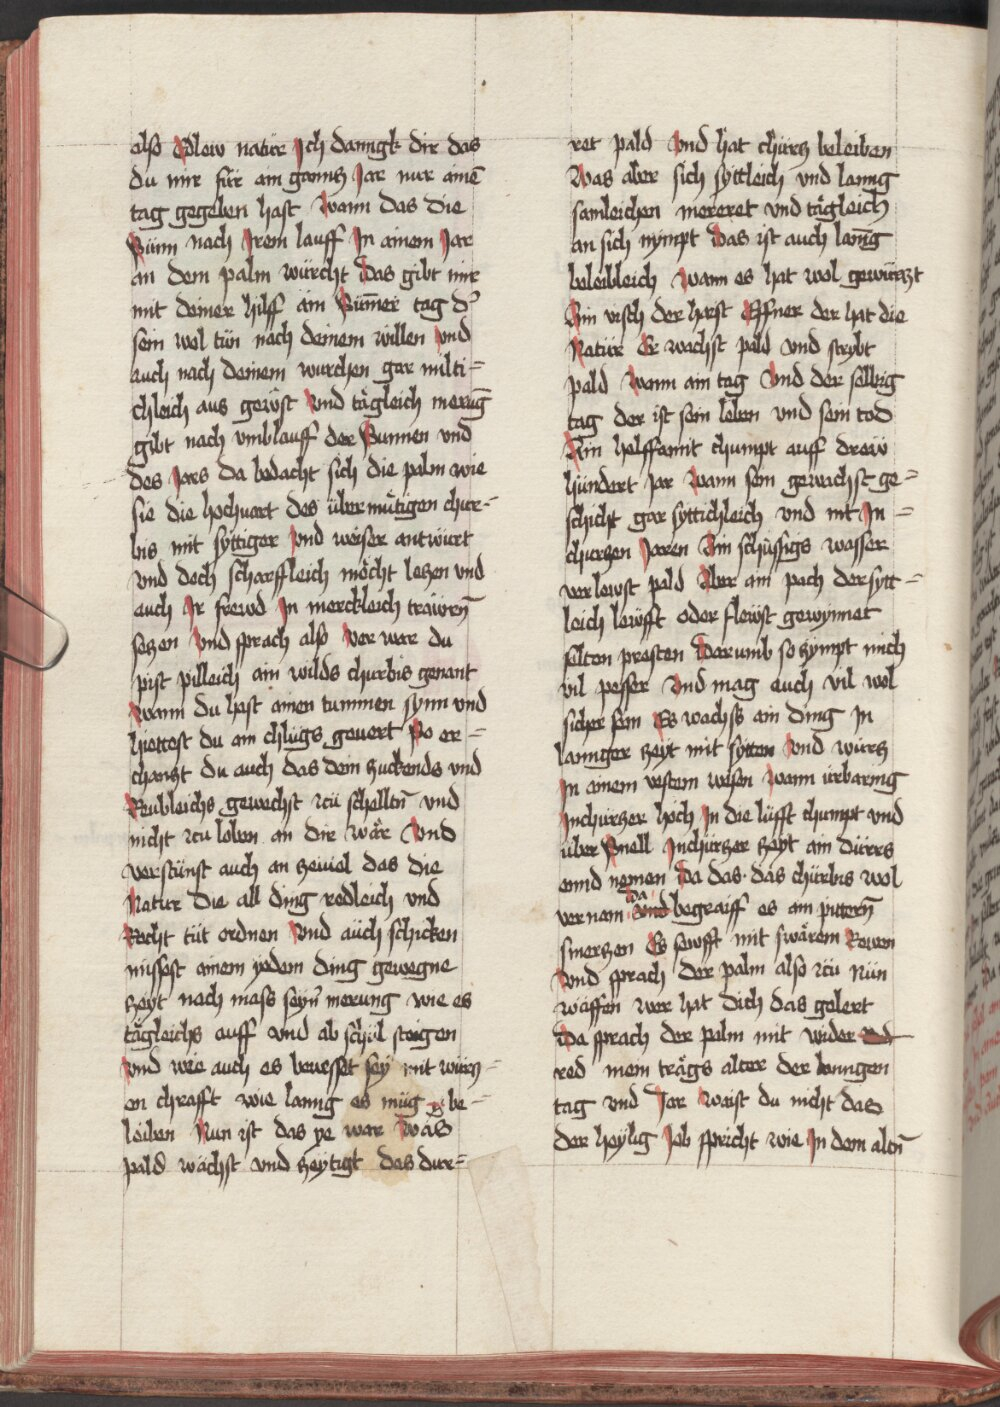 also Edlew natur Ich danngk dir das
du mir für ain gannts Jar nur ainē
tag gegeben hast Wann das die
Sünn nach Irem lauff In ainem Jar
an dem palm würcht Das gibt mir
mit deiner hilff ain Sūmer tag d'
sein wol tün nach deinem willen Vnd
auch nach deinem wurchen gar milti=
chleich aus gewst Vnd tägleich merūg
gibt nach vmblauff der Sunnen vnd
des Jares da bedacht sich die palm wie
sie die hochuart des übermütigen chur=
bis mit syttiger Vnd weiser antwurt
vnd doch scharffleich möcht letzen vnd
auch Ir frewd In merckleich trawrn̄
setzen Vnd sprach also Ver war du
pist pilleich ain wilds churbis genant
Wann du hast ainen tummen synn vnd
hiettest du ain chlugs geuert So er=
chanst du auch das dein zuckends vnd
Reubleichs gewechst zcü schelltn̄ vnd
nicht zcu loben an dir wär Vnd
verstünst auch an zeuiel das die
Natur die all ding redleich vnd
Recht tüt ordnen Vnd auch schicken
müssest ainem yedem ding gewegne
zeyt nach mass seyn̄ merung wie es
tägleichs auff vnd ab schol steigen
Vnd wie auch es beuesset sey mit würtz=
en chrafft wie lanng es müg be=
leiben Nun ist das ye war Was
pald wächst vnd zeytigt das dur=
ret pald Vnd hat churtz beleiben
Was aber sich syttleich vnd lanng
samleichen mereret vnd tägleich
an sich nympt Das ist auch lān̄g
beleibleich Wann es hat wol gewürtzt
Ain visch der haist Effner der hat die
Natur Er wachst pald vnd styrbt
pald Wann ain tag Vnd der selbig
tag der ist sein leben vnd sein tod
Ain helffannt chumpt auff drew
hündert Jar Wann sein gewachst ge=
schicht gar syttichleich vnd nit In=
churtzen Jaren Ain schüssigs wasser
verlewst pald Aber ain pach der sytt=
leich lewfft oder flewst gewynnet
selten presten Darumb so zympt mich
vil pesser Vnd mag auch vil wol
sicher sein Es wachs ain ding In
lannger zeyt mit sytten Vnd würtz
In ainem vestem wesen Wann vrbaring
Inchürtzer hoch In die lüfft chumpt vnd
über Snell Inchürtzer zeyt ain dürrs
ennd nemen Da das das chürbis wol
vernam da begraiff es ain pittern̄
smertzen Es sewfft mit swärem Rewen
Vnd sprach der palm also zcü Nün
waffen wer hat dich das gelert
Da sprach der palm mit wider
red mein trägs alter der lanngen
tag vnd Jar Waist du nicht das
der heylig Job spricht wie In dem altn̄